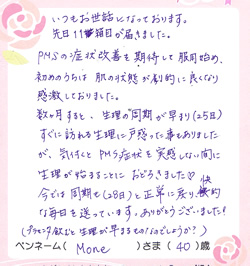 いつもお世話になっております。
先日11箱目が届きました。
PMSの症状改善を期待して服用始め、
初めのうちは肌の状態が劇的に良くなり
感激しておりました。
数ヶ月すると、生理の周期が早まり(25日)
すぐに訪れる生理に戸惑った事もありました
が、気付くとPMS症状を実感しない間に
生理が始まることにおどろきました♡
今では周期も(28日)と正常に戻り、快適
な毎日を送っています。ありがとうございました!
(プラセンタ飲むと生理が早まるものなのでしょうか?)
ペンネーム( Mone )さま(40)歳